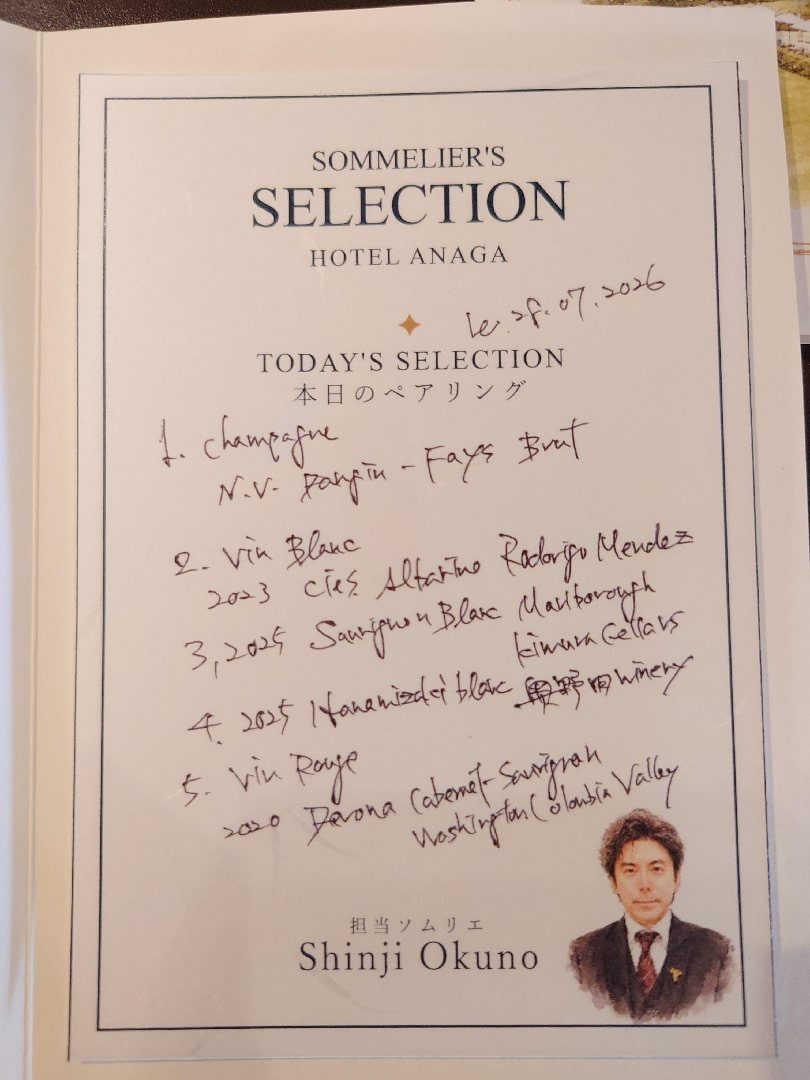 SOMMELIER'S
SELECTION
HOTEL ANAGA
le. 28. 07. 2026
TODAY'S SELECTION
本日のペアリング
1. Champagne
N.V. Dangin - Fays Brut
2. Vin Blanc
2023 Cies Altarino Rodorigo Mendez
3, 2025 Sauvignon Blanc Marlborough
kimura Cellars
4. 2025 Hanamizuki blanc 奥野田 winery
5. Vin Rouge
2020 Devona Cabernet-Sauvignon
Washington Colonbia Valley
担当ソムリエ
Shinji Okuno